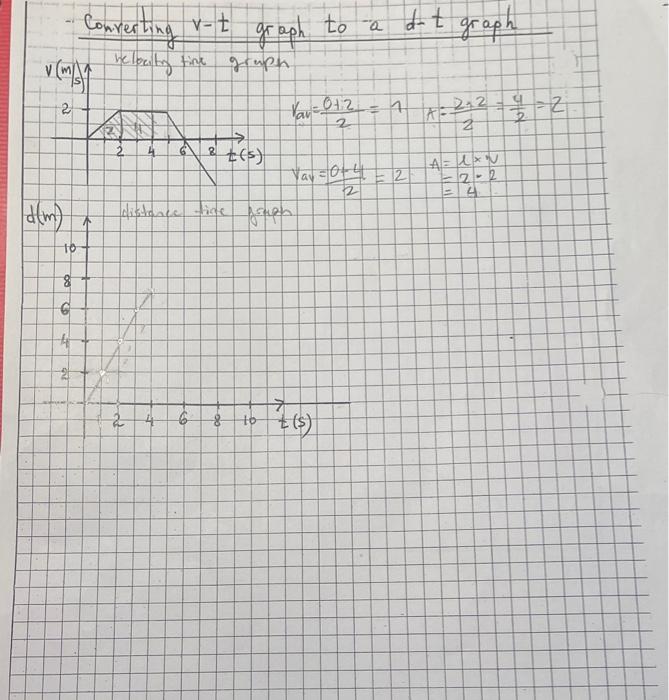 - Converting v-t graph to a d-t graph
velocity time graph
v(m/s)
2
2 4
2 4 6 8 t(s)
Vav = 0+2/2 = 1
A = 2·2/2 = 4/2 = 2
Vav = 0+4/2 = 2
A = l × w
= 2 · 2
= 4
d(m) distance time graph
10
8
6
4
2
2 4 6 8 10 t(s)